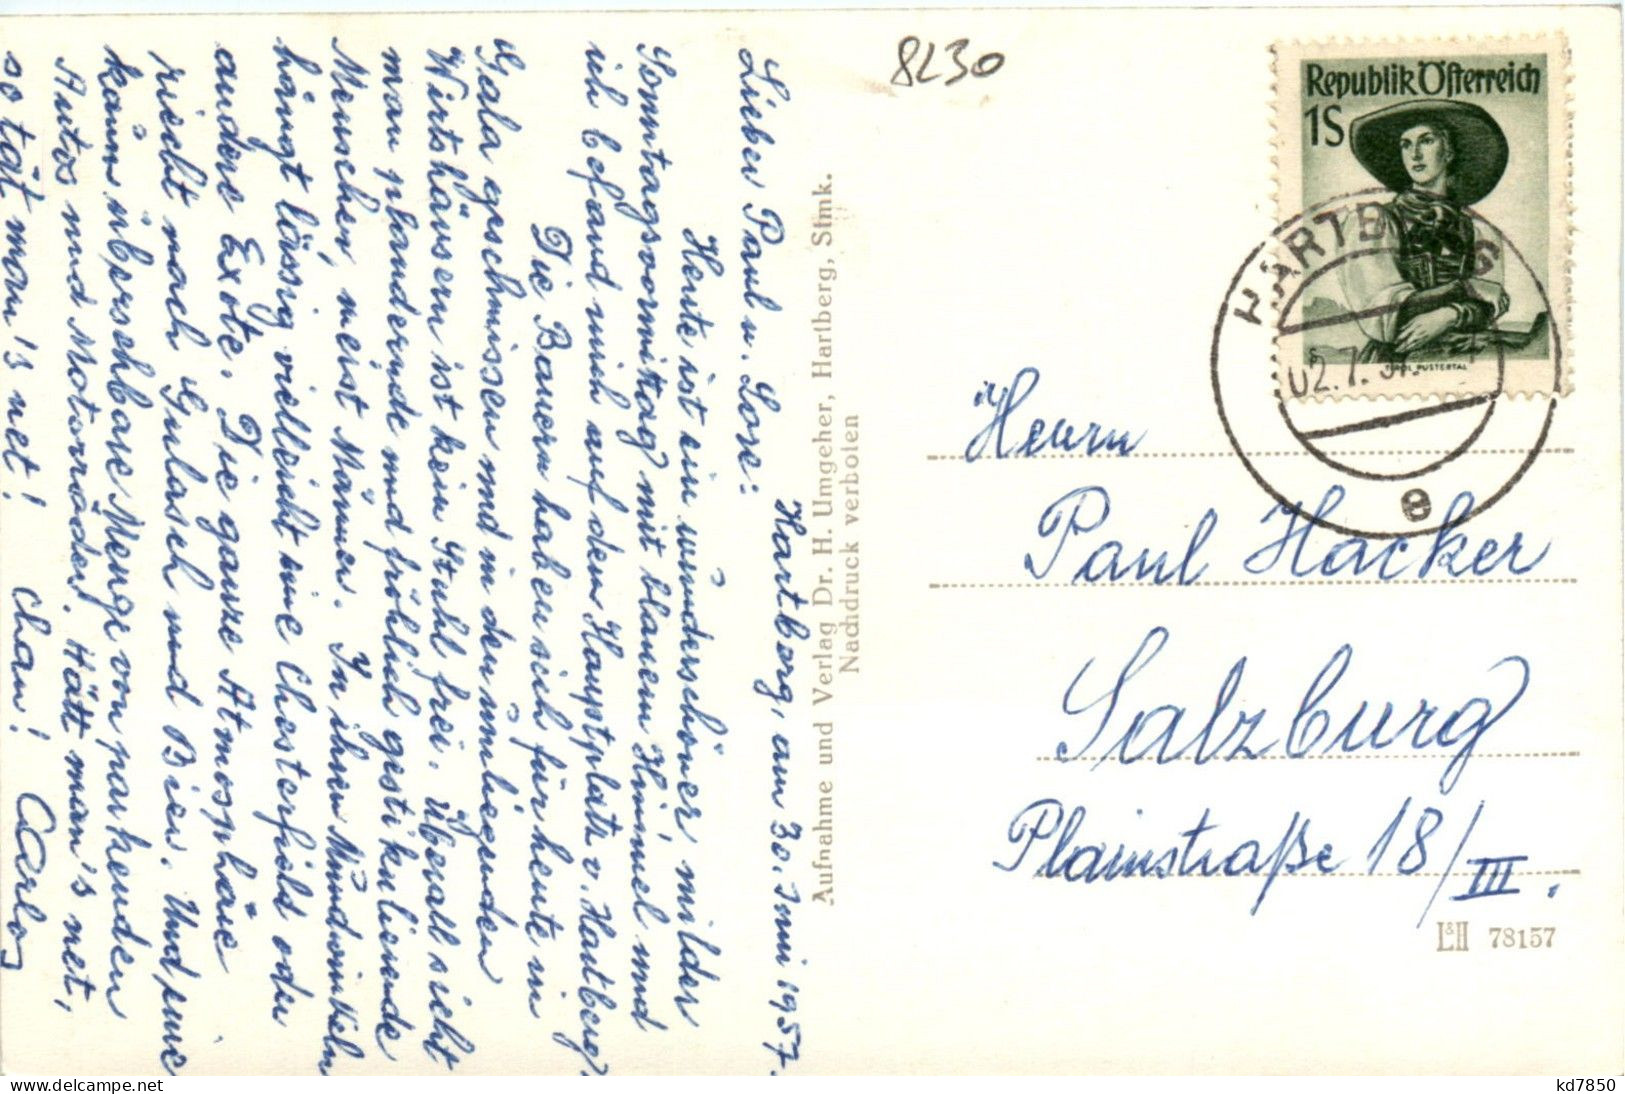 Hartberg, am 30. Juni 1957.
Lieber Paul u. Lore:
Heute ist ein wunderschöner milder
Sonntagsvormittag mit blauem Himmel und
ich befand mich auf dem Hauptplatz v. Hartberg
Die Bauern haben sich für heute in
Gala geschmissen und in den umliegenden
Wirtshäusern ist kein Stuhl frei. Überall sieht
man plaudernde und fröhlich gestikulierende
Menschen, meist Männer. In ihren Mundwinkeln
hängt lässig vielleicht eine Chesterfield oder
andere Exote. Die ganze Atmosphäre
riecht nach Gulasch und Bier. Und jene
kaum übersehbare Menge von parkenden
Autos und Motorräder! Hätt man's net,
so tät man's net! Ciao! Carlos
Aufnahme und Verlag Dr. H. Umgeher, Hartberg, Stmk.
Nachdruck verboten
8230
Republik Österreich
1S
TIROL, PUSTERTAL
HARTBERG
02.7.57
e
Herrn
Paul Hacker
Salzburg
Plainstraße 18/III.
L&H 78157
kd7850